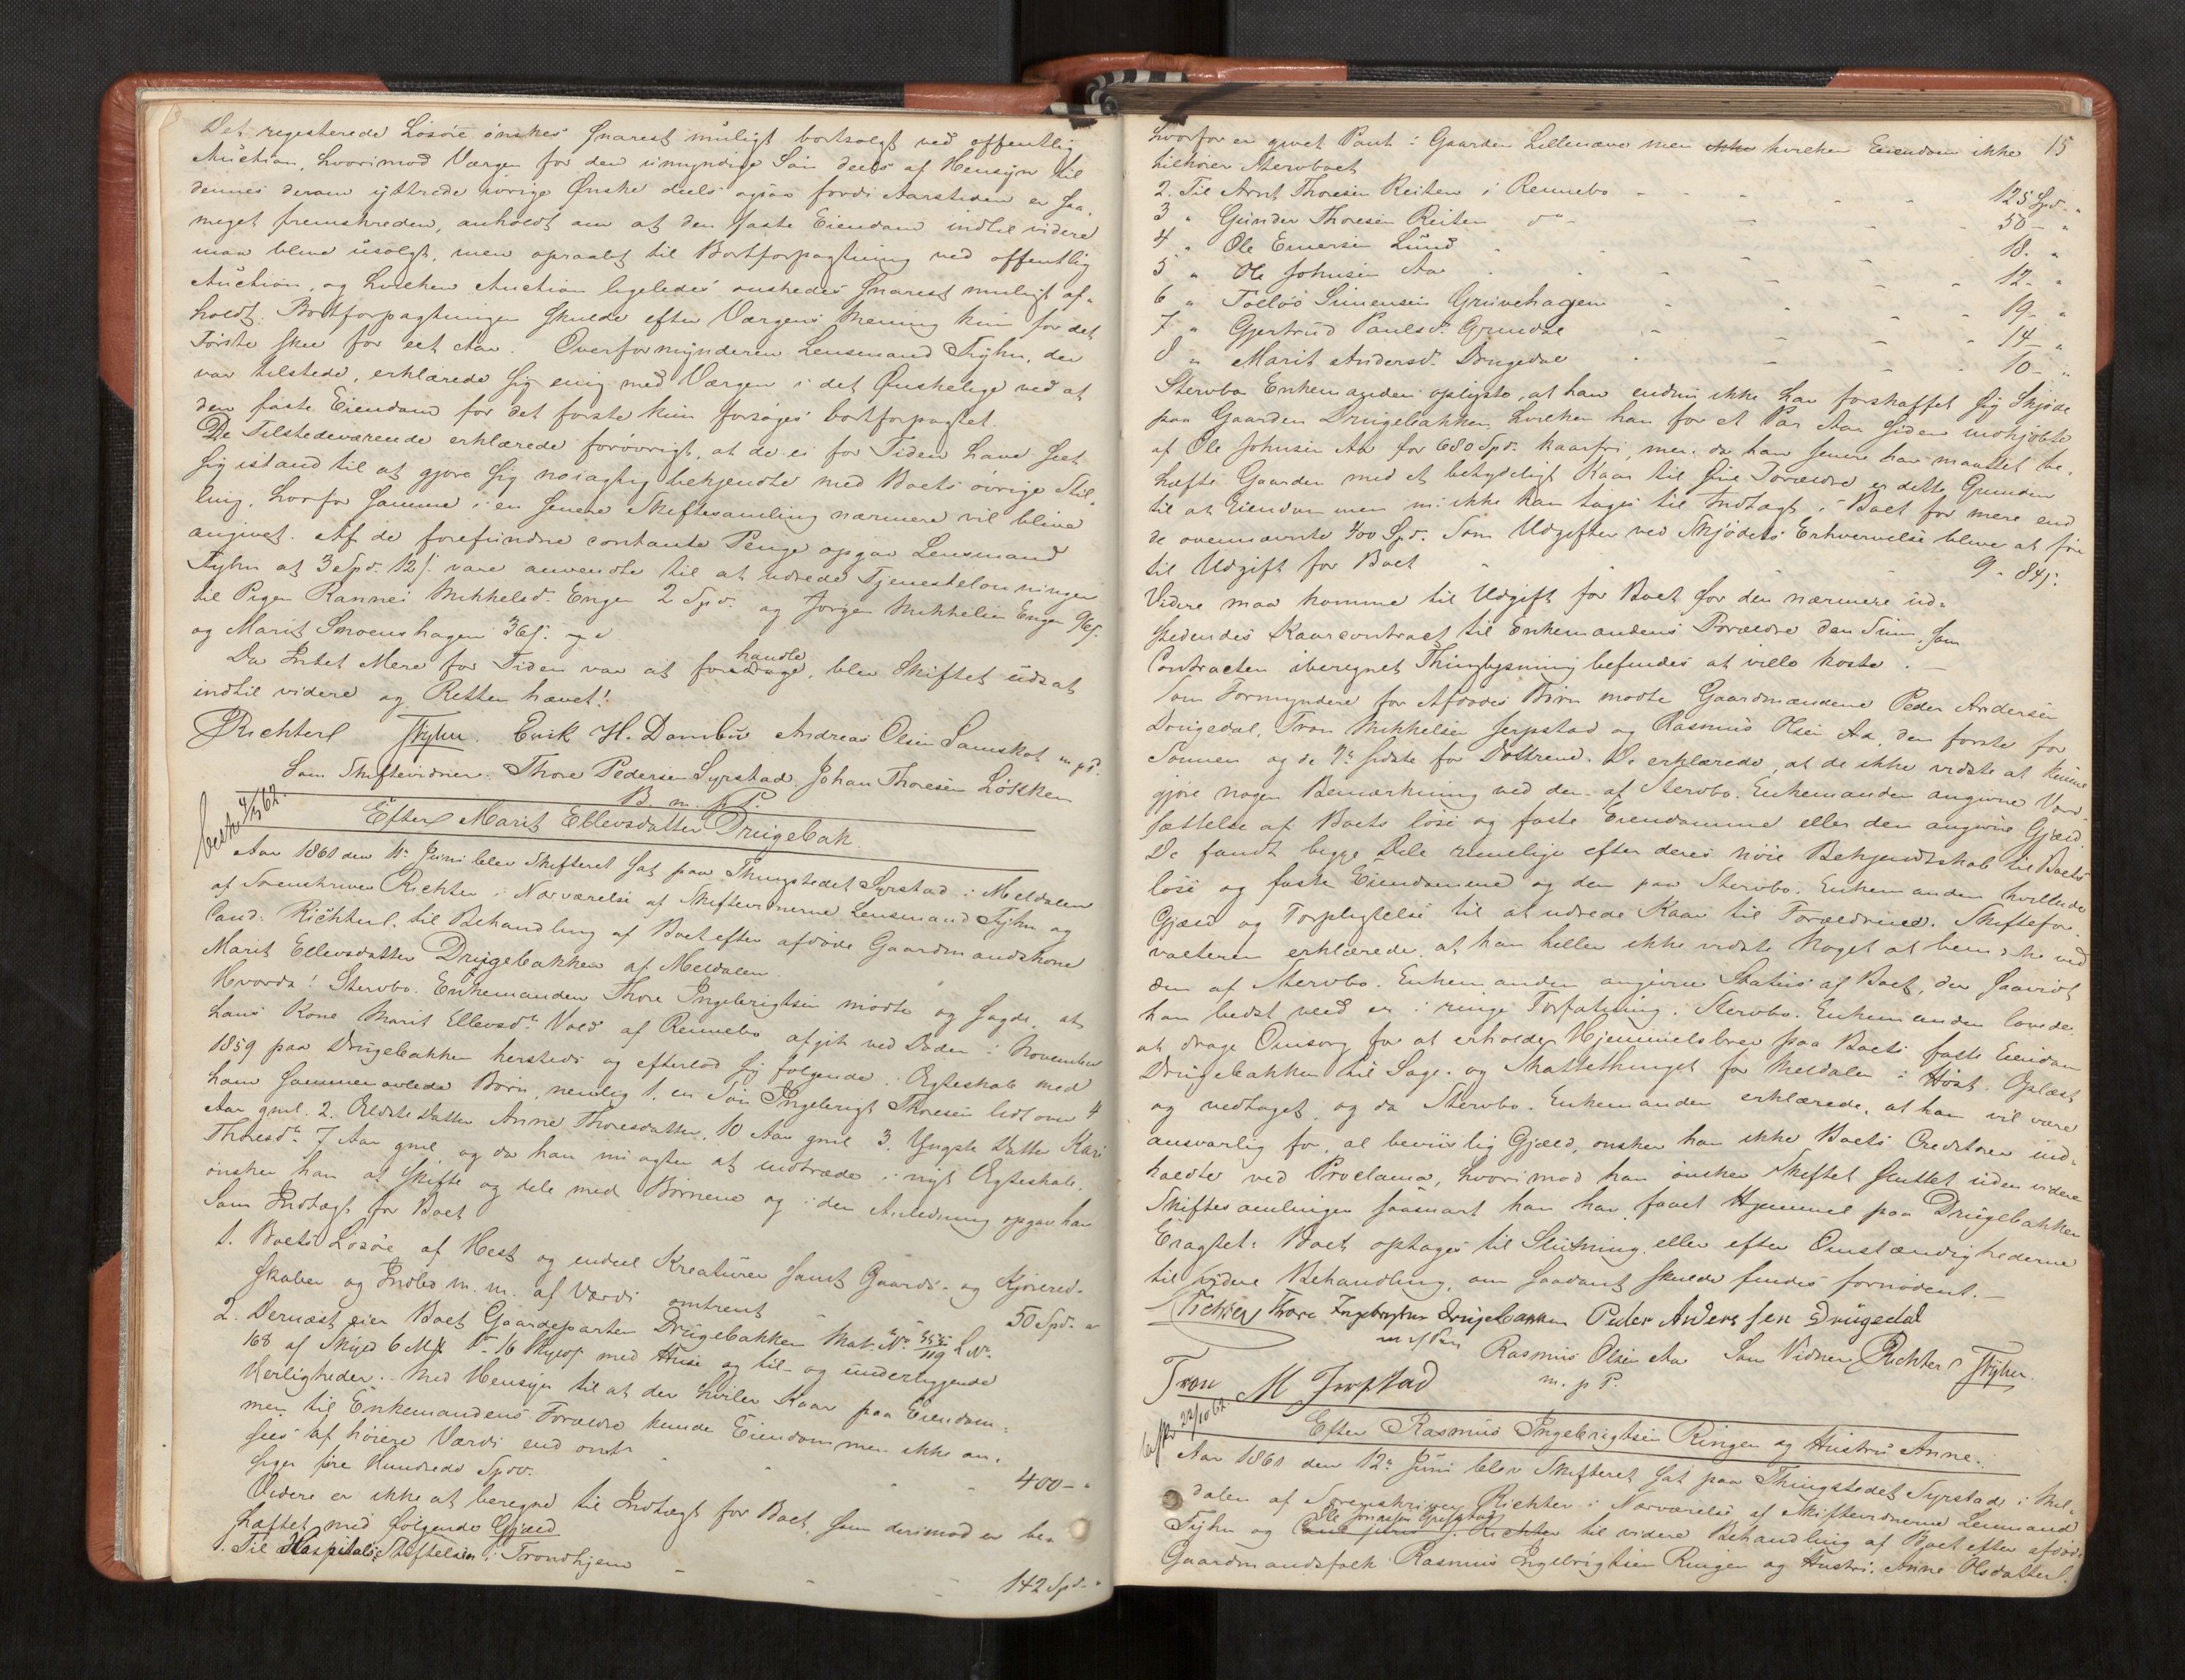 Det registerede Løsøre ønskes snarest muligt bortsolgt ved offentlig
Auction, hvorimod Værgen for den umyndige Søn deels af Hensyn til
dennes derom yttrede ivrige Ønske deels ogsaa fordi Aarstiden er saa
meget fremskreden, anholdt om at den faste Eiendom indtil videre
maa blive usolgt, men opraabt til Bortforpagtning ved offentlig
Auction, og hvilken Auction ligeledes ønskedes snarest muligt af-
holdt. Bortforpagtningen skulde efter Værgens Mening kun for det
Første skee for eet Aar. Overformynderen Lensmand Fyhn, der
var tilstede, erklærede sig enig med Værgen i det Ønskelige ved at
den faste Eiendom for det første kun forsøges bortforpagtet.
De Tilstedeværende erklærede forøvrigt, at de ei for Tiden have seet
sig istand til at gjøre sig nøiagtig bekjendte med Boets øvrige Stil-
ling, hvorfor samme i en senere Skiftesamling nærmere vil blive
angivet. Af de forefundne contante Penge opgav Lensmand
Fyhn at 3 Spd. 12 s. vare anvendte til at udrede Tjenestelønningen
til Pigen Rannei Mikkelsd. Engen 2 Spd. og Jørgen Mikkelsen Engen 96 s.
og Marit Smoenshagen 36 s.
Da Intet Mere for Tiden var at forehandle, blev Skiftet udsat
indtil videre og Retten hævet!
Richter Fyhn. Erik H. Dambu Andreas Olsen Lamskot m. p. P.
Som Skiftevidner. Thore Pedersen Syrstad. Johan Thoresen Løkken
B m. p. P.
Efter Marit Ellevsdatter Drugebak.
Aar 1861 den 11te Juni blev Skifteret sat paa Thingstedet Syrstad i Meldalen
af Sorenskriver Richter i Nærværelse af Skiftevidnerne Lensmand Fyhn og
Cand: Richter, til Behandling af Boet efter afdøde Gaardmandskone
Marit Ellevsdatter Drugebakken af Meldalen.
Hvorda! Stervbo-Enkemanden Thore Ingebrigtsen mødte og sagde, at
hans Kone Marit Ellevsd. Vold af Rennebo afgik ved Døden i November
1859 paa Drugebakken hersteds og efterlod sig følgende i Ægteskab med
ham sammenavlede Børn, nemlig 1. en Søn Ingebrigt Thoresen lidt over 4
Aar gml. 2. Ældste Datter Anne Thoresdatter, 10 Aar gml 3. Yngste Datter Kari
Thoresd. 7 Aar gml, og da han nu agter at indtræde i nyt Ægteskab,
ønsker han at skifte og dele med Børnene og i den Anledning opgav han
som Indtægt for Boet
1. Boets Løsøre af Hest og endeel Kreaturer samt Gaards- og Kjørered-
skaber og Indbo m. m. af Værdi omtrent 50 Spd. "
2. Dernæst eier Boet Gaardeparten Drugebakken Mat. No. 119 L No.
168 af Skyld med Huse og til- og underliggende
Herligheder. Med Hensyn til at der hviler Kaar paa Eiendom-
men til Enkemandens Forældre kunde Eiendommen ikke an-
sees af høiere Værdi end omt.
siger fire Hundrede Spd. 400 - "
Videre er ikke at beregne til Indtægt for Boet, som derimod er be-
hæftet med følgende Gjæld
1. Til Hospitals Stiftelsen i Trondhjem 142 Spd. "
15
hvorfor er givet Pant i Gaarden Lilleneve men hvilken Eiendom ikke
tilhører Stervboet
2. Til Arnt Thoresen Reiten i Rennebo 125 Spd. "
3 " Gunder Thoresen Reiten do 50 - "
4 " Ole Einersen Lund 18. "
5 " Ole Johnsen Aa 12 - "
6 " Tolløs Simensen Gruvehagen 19 - "
7 " Gjertrud Paulsd. Grindal 14 "
8 " Marit Andersd. Drugedal 10 - "
Stervbo Enkemanden oplyste, at han endnu ikke har forskaffet sig Skjøde
paa Gaarden Drugebakken, hvilken han for et Par Aar siden indkjøbte
af Ole Johnsen Aa for 680 Spd. kaarfri, men da han senere har maattet be-
hæfte Gaarden med et betydeligt Kaar til sine Forældre er dette Grunden
til at Eiendommen ikke kan tages til Indtægt i Boet for mere end
de ovennævnte 400 Spd. Som Udgifter ved Skjødets Erhvervelse blive at føre
til Udgift for Boet 9 - 84 s.
Videre maa komme til Udgift for Boet for den nærmere ud-
stedendes Kaarcontract til Enkemandens Forældre den Sum, som
Contracten iberegnet Thinglysning befindes at ville koste. -
Som Formyndere for Afdødes Børn mødte Gaardmændene Peder Andersen
Drugedal, Tron Mikkelsen Jerpstad og Rasmus Olsen Aa, den første for
Sønnen og de 2de sidste for Døttrene. De erklærede, at de ikke vidste at kunne
gjøre nogen Bemærkning ved den af Stervbo-Enkemanden angivne Værd-
sættelse af Boets løse og faste Eiendomme eller den angivne Gjæld.
De fandt begge Dele rimelige efter deres nøie Bekjendtskab til Boets
løse og faste Eiendomme og den paa Stervbo-Enkemanden hvilende
Gjæld og Forpligtelse til at udrede Kaar til Forældrene. Skiftefor-
valteren erklærede, at han heller ikke vidste Noget at bemærke ved
den af Stervbo-Enkemanden angivne Status af Boet, der saavidt
han bedst veed er i ringe Forfatning. Stervbo-Enkemanden lovede
at drage Omsorg for at erholde Hjemmelsbrev paa Boets faste Eiendom
Drugebakken til Sage- og Skattethinget for Meldalen i Høst. Oplæst
og vedtaget, og da Stervbo-Enkemanden erklærede, at han vil være
ansvarlig for al beviislig Gjæld, ønsker han ikke Boets Creditorer ind-
kaldte ved Proclama, hvorimod han ønsker Skiftet sluttet uden videre
Skiftesamlinger saasnart han har faaet Hjemmel paa Drugebakken
Eragtet: Boet optages til Slutning eller efter Omstændighederne
til videre Behandling, om saadant skulde findes fornødent. -
Richter Thore Ingebrigtsen Drugebakken Peder Andersen Drugedal
Rasmus Olsen Aa Som Vidner, Richter Fyhn.
m. p. P.
Tron M Jerpstad
Efter Rasmus Ingebrigtsen Ringen og Hustru Anne.
Aar 1861 den 12te Juni blev Skifteret sat paa Thingstedet Syrstad i Mel-
dalen af Sorenskriver Richter i Nærværelse af Skiftevidnerne Lensmand
Fyhn og Ole til videre Behandling af Boet efter afdøde
Gaardmandsfolk Rasmus Ingebrigtsen Ringen og Hustru Anne Olsdatter.